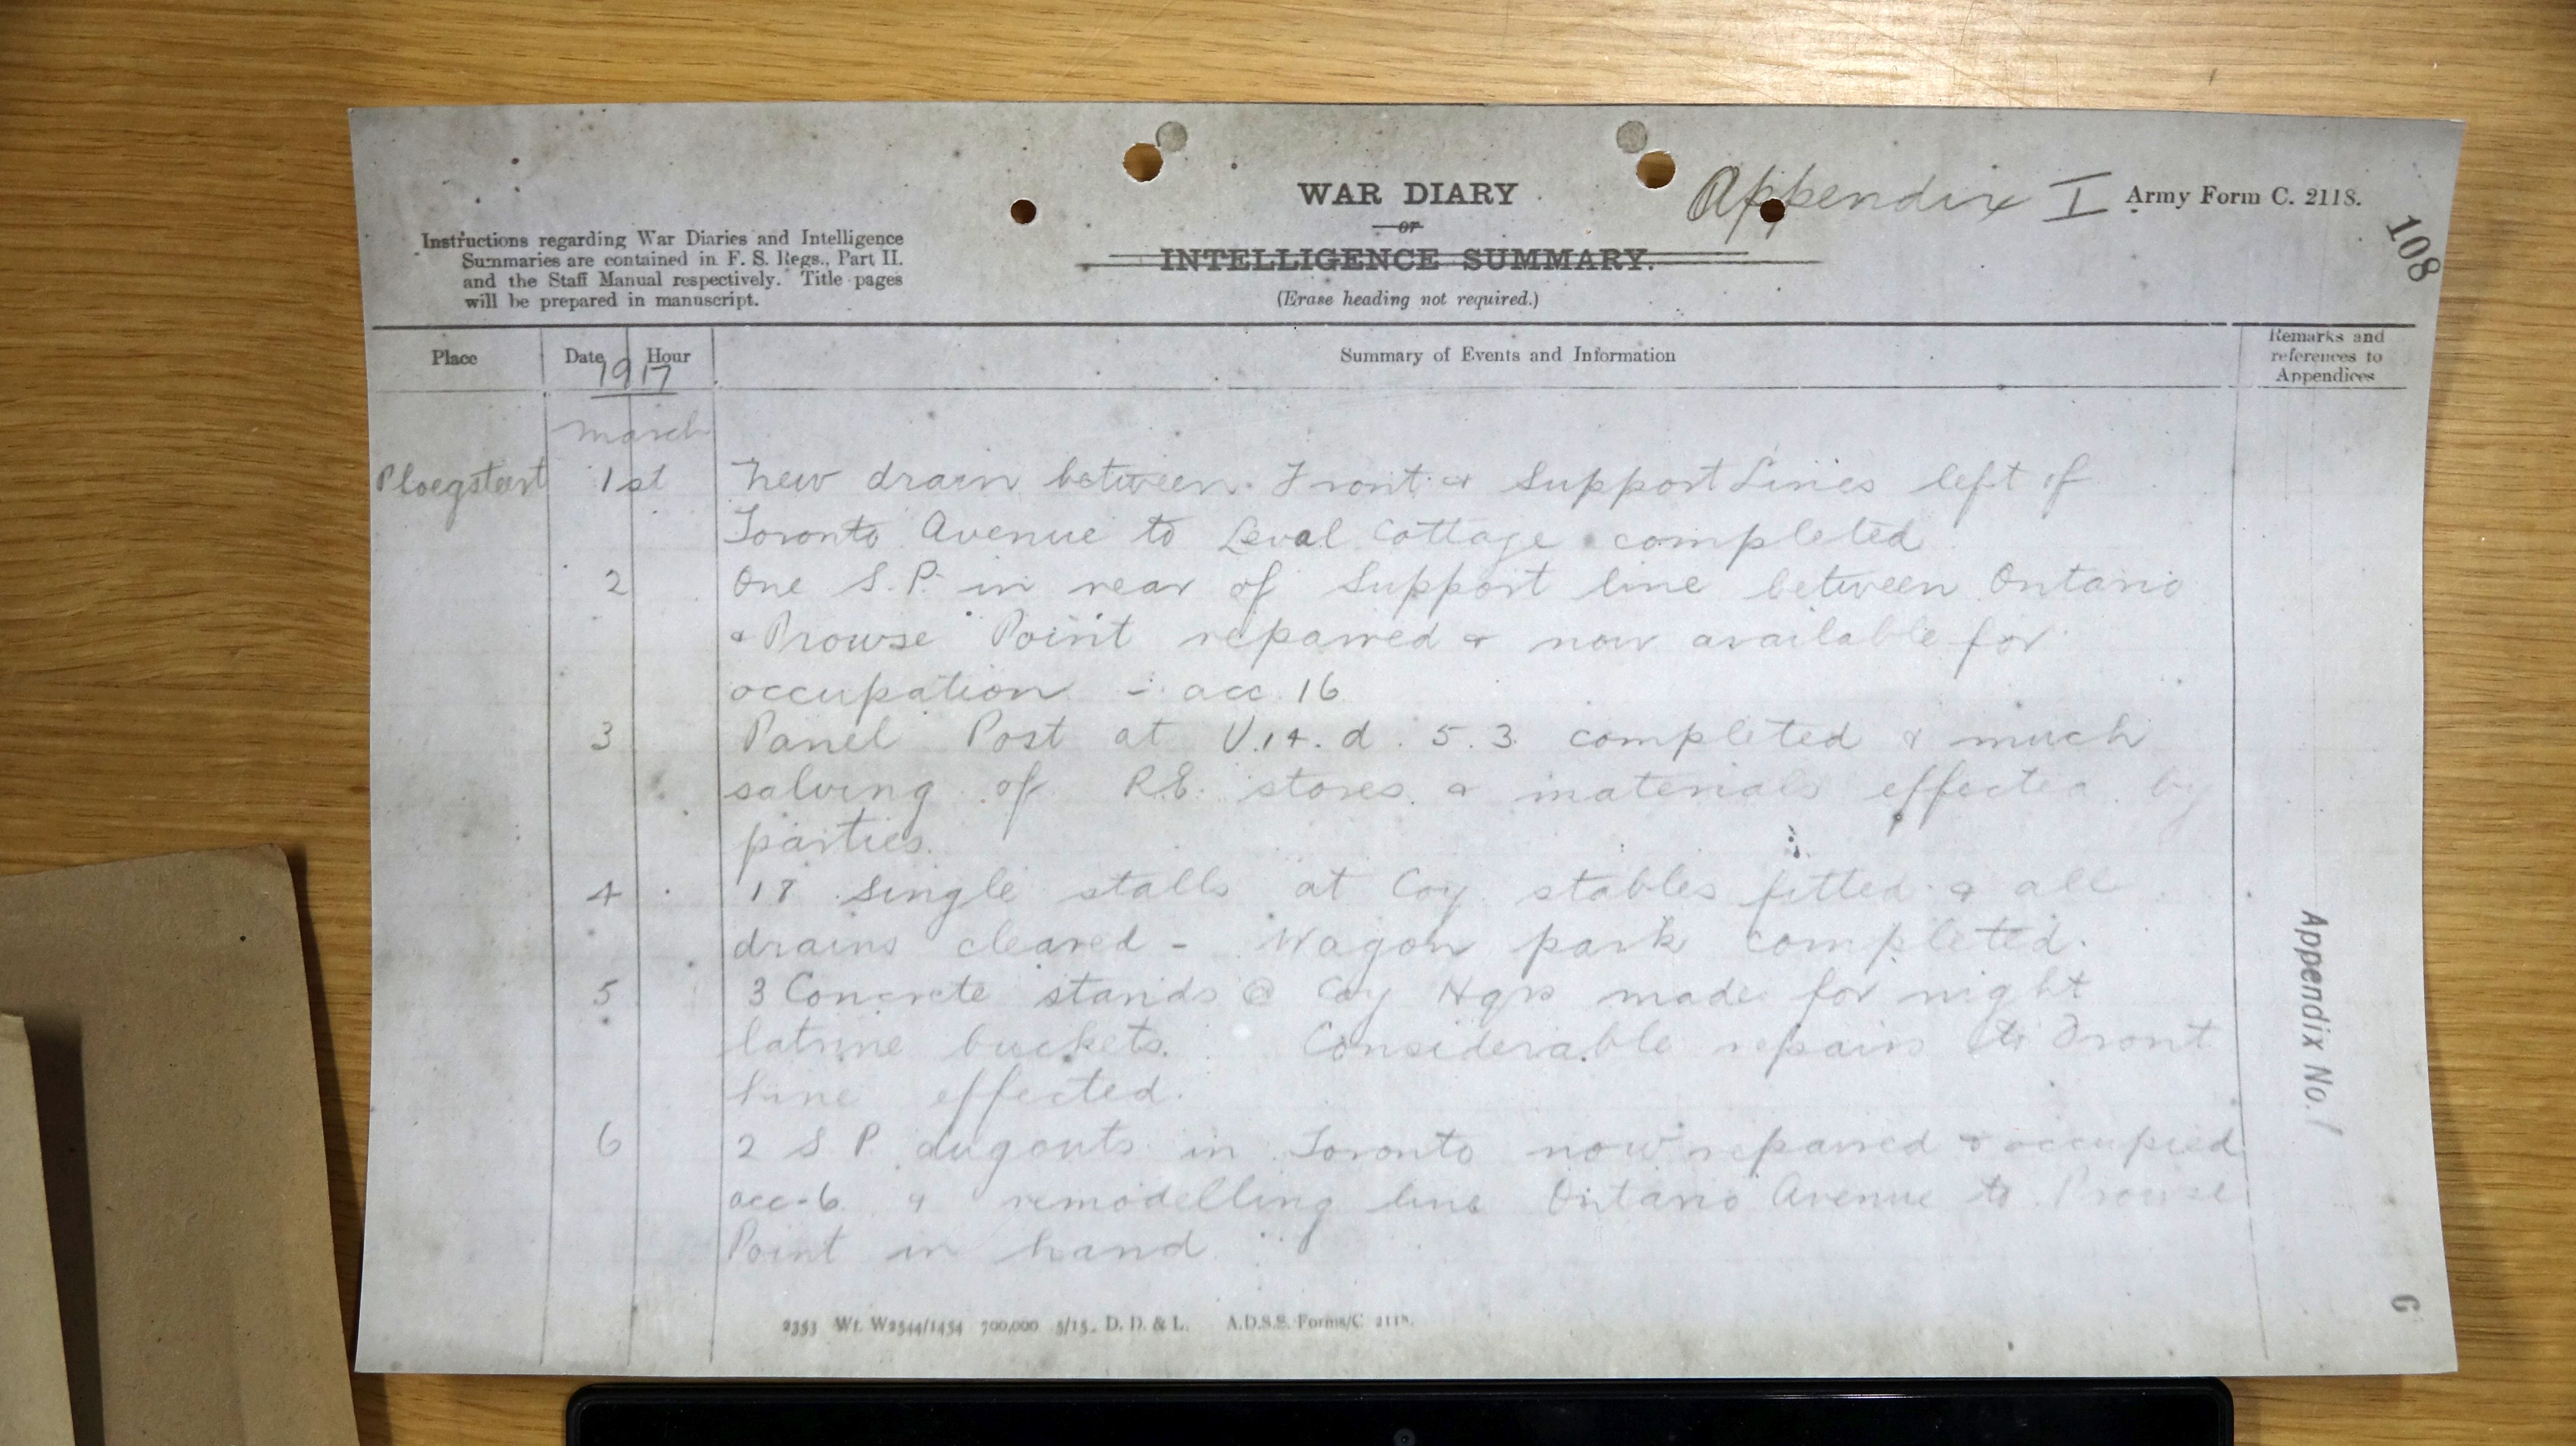 WAR DIARY
or
INTELLIGENCE SUMMARY.
(Erase heading not required.)
Appendix I
Army Form C. 2118.
108
Instructions regarding War Diaries and Intelligence
Summaries are contained in F. S. Regs., Part II.
and the Staff Manual respectively. Title pages
will be prepared in manuscript.
Place
Date Hour
1917
Summary of Events and Information
Remarks and
references to
Appendices
March
Ploegsteert 1st New drain between Front & Support Lines left of
Toronto Avenue to Leval Cottage completed
2 One S.P. in rear of Support line between Ontario
& Prowse Point repaired & now available for
occupation - acc. 16
3 Panel Post at U.14.d.5.3. completed & much
salving of R.E. stores & materials effected by
parties.
4 18 single stalls at Coy stables fitted & all
drains cleared - Wagon park completed.
5 3 Concrete stands @ Coy Hqrs made for night
latrine buckets. Considerable repairs to Front
line effected.
6 2 S.P. dugouts in Toronto now repaired & occupied
acc-6 & remodelling line Ontario Avenue to Prowse
Point in hand
Appendix No. 1
2353 Wt. W2544/1454 700,000 5/15. D. D. & L. A.D.S.S. Forms/C 2118.